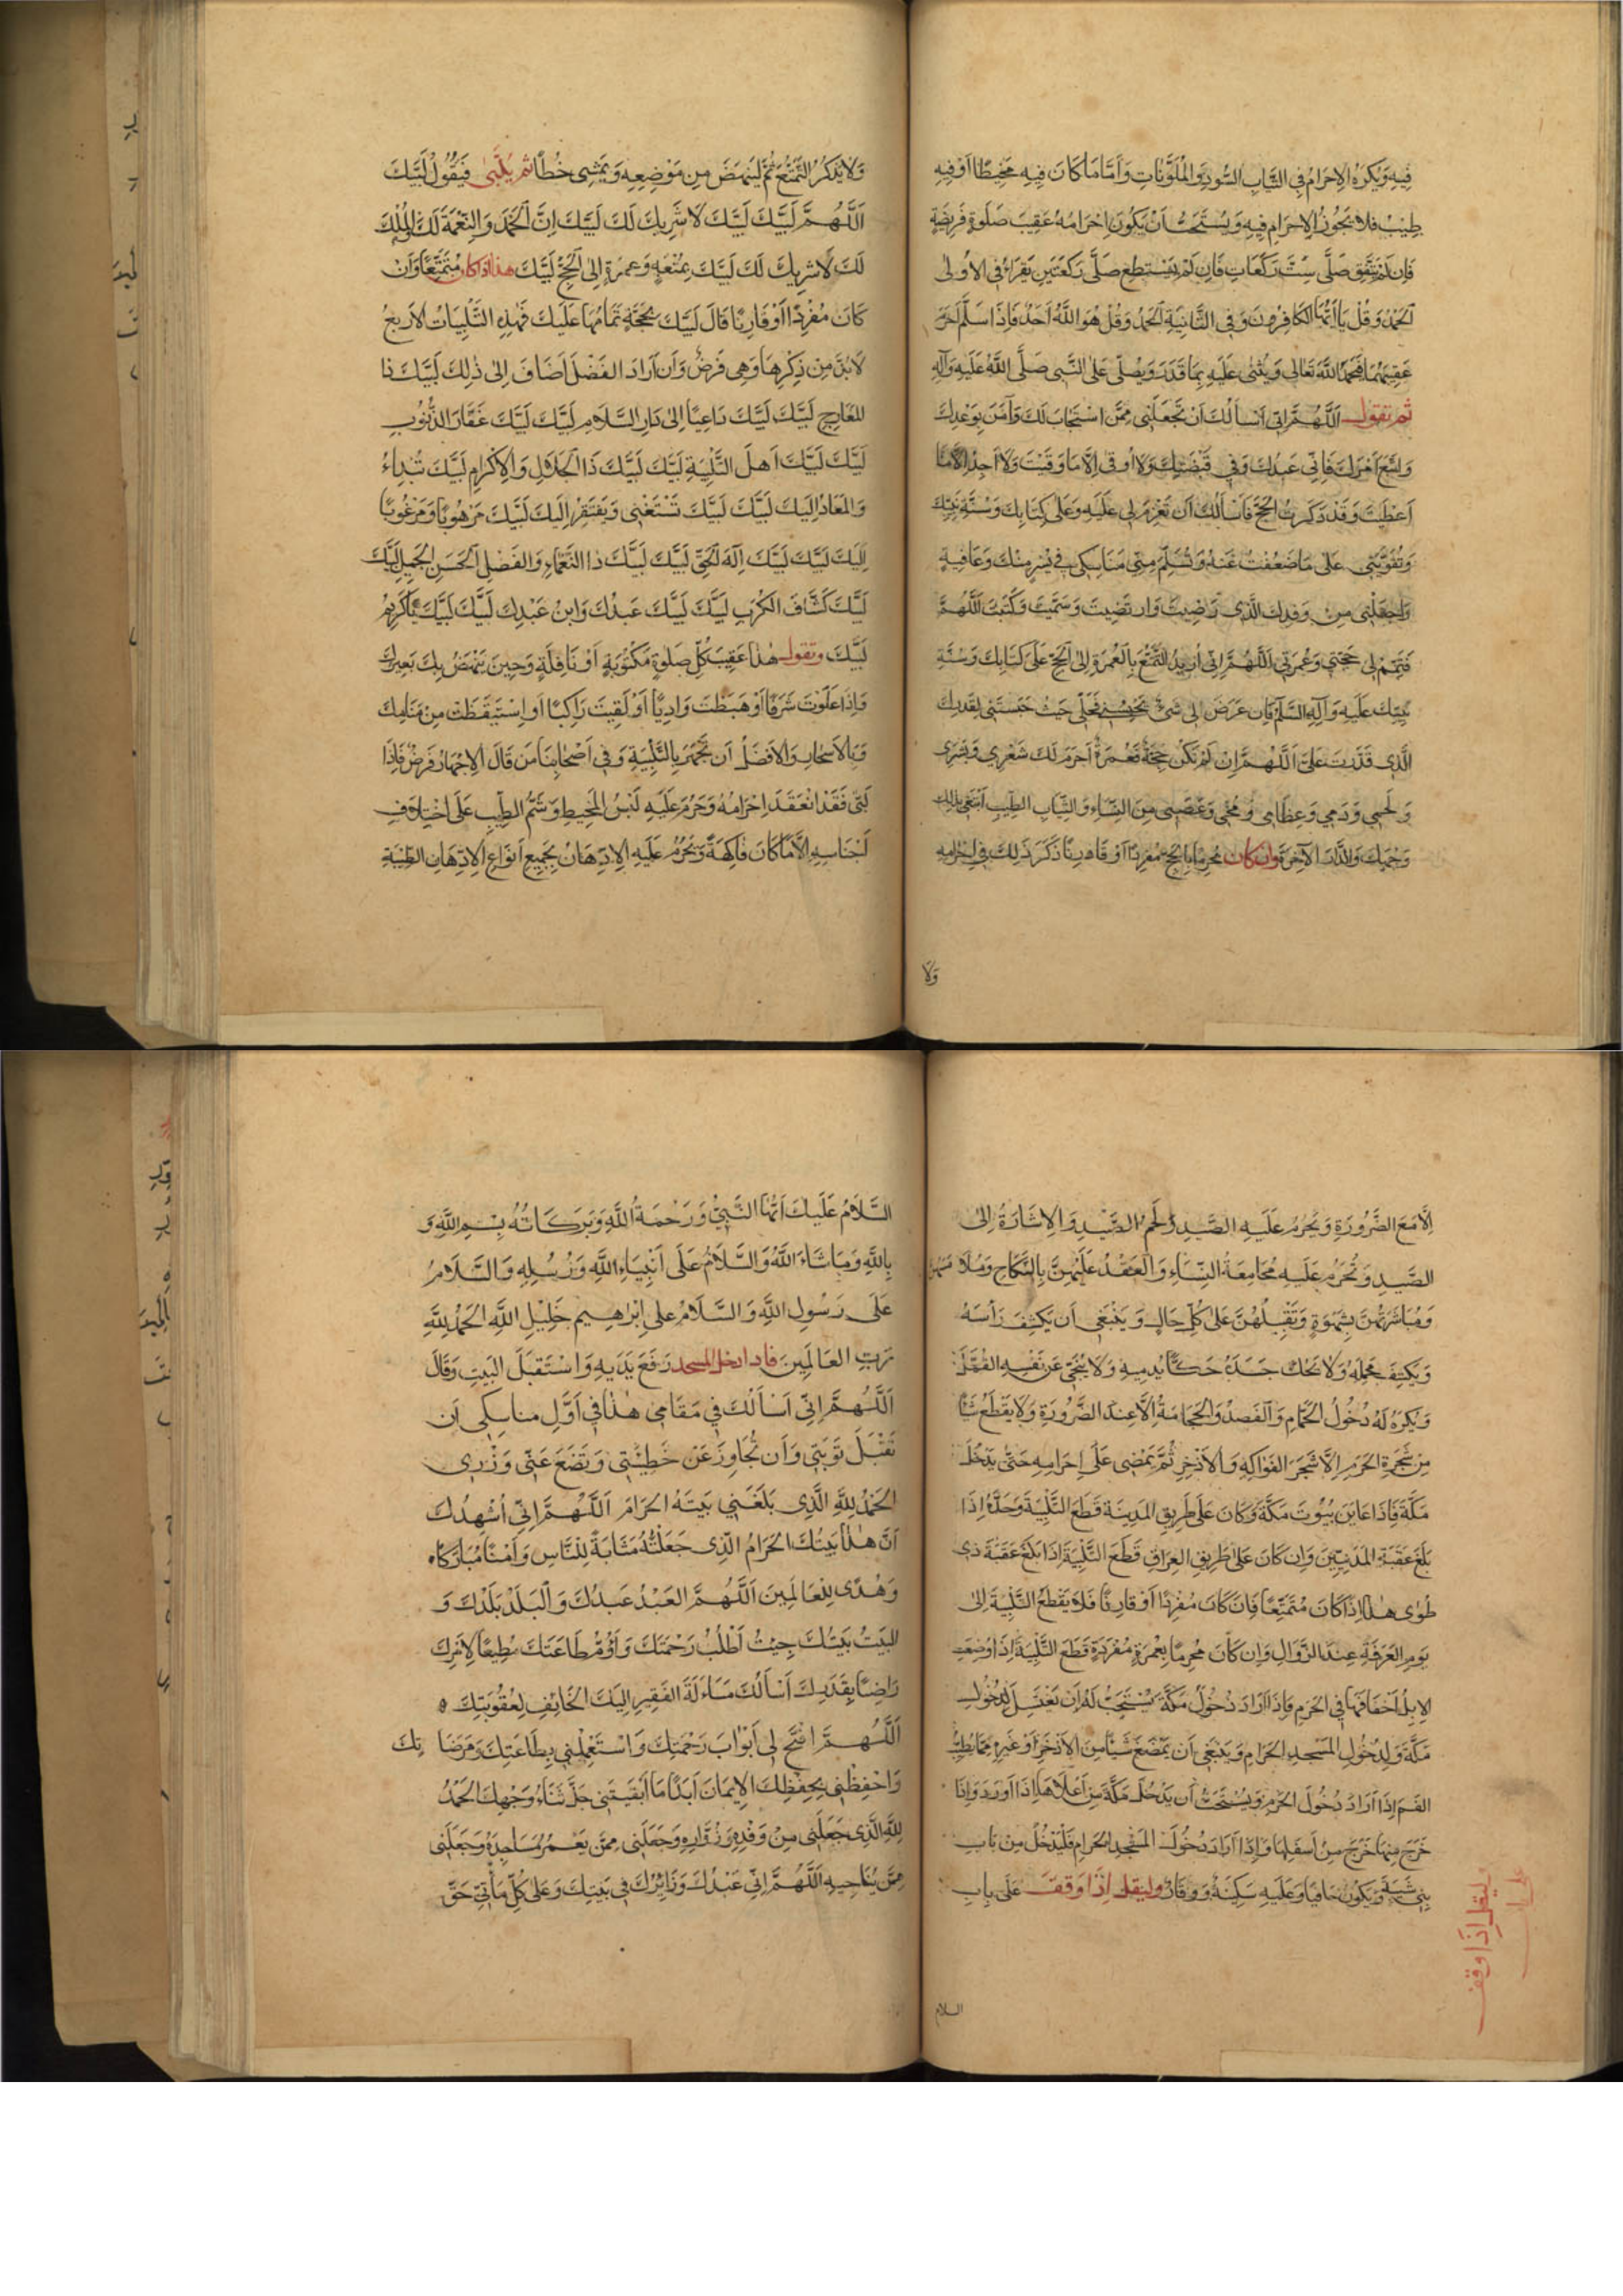 فِيهِ وَيَكْرَهُ الاِحْرَامُ فِي الثِّيَابِ السُّودِ وَالْمُلَوَّنَاتِ وَاَمَّا مَا كَانَ فِيهِ مَخِيطًا اَوْ فِيهِ
طِيبٌ فَلَا يَجُوزُ الاِحْرَامُ فِيهِ وَيُسْتَحَبُّ اَنْ يَكُونَ اِحْرَامُهُ عَقِيبَ صَلَوةٍ فَرِيضَةٍ
فَاِنْ لَمْ يَتَّفِقْ صَلَّى سِتَّ رَكَعَاتٍ فَاِنْ لَمْ يَسْتَطِعْ صَلَّى رَكْعَتَيْنِ يَقْرَاُ فِي الاُولىٰ
الْحَمْدُ وَقُلْ يَا اَيُّهَا الكَافِرُونَ وَفِي الثَّانِيَةِ الْحَمْدُ وَقُلْ هُوَ اللّٰهُ اَحَدٌ فَاِذَا سَلَّمَ اَحْرَمَ
عَقِيبَهُمَا فَحَمِدَ اللّٰهَ تَعَالىٰ وَيُثْنِي عَلَيْهِ بِمَا قَدَرَ وَيُصَلِّي عَلَى النَّبِي صَلَّى اللّٰهُ عَلَيْهِ وَآلِهِ
ثم تقول اَللّٰهُمَّ اِنِّي اَسْاَلُكَ اَنْ تَجْعَلَنِي مِمَّنِ اسْتَجَابَ لَكَ وَآمَنَ بِوَعْدِكَ
وَاتَّبَعَ اَمْرَكَ فَاِنِّي عَبْدُكَ وَفِي قَبْضَتِكَ وَلَا اُوقىٰ اِلَّا مَا وَقَيْتَ وَلَا اَجِدُ اِلَّا مَا
اَعْطَيْتَ وَقَدْ ذَكَرْتُ الْحَجَّ فَاَسْاَلُكَ اَنْ تَعْزِمَ لِي عَلَيْهِ وَعَلىٰ كِتَابِكَ وَسُنَّةِ نَبِيِّكَ
وَتُقَوِّيَنِي عَلىٰ مَا ضَعُفْتُ عَنْهُ وَتُسَلِّمَ مِنِّي مَنَاسِكِي فِي يُسْرٍ مِنْكَ وَعَافِيَةٍ
وَاجْعَلْنِي مِنْ وَفْدِكَ الَّذِي رَضِيتَ وَارْتَضَيْتَ وَسَمَّيْتَ وَكَتَبْتَ اَللّٰهُمَّ
فَتَمِّمْ لِي حَجَّتِي وَعُمْرَتِي اَللّٰهُمَّ اِنِّي اُرِيدُ التَّمَتُّعَ بِالْعُمْرَةِ اِلَى الْحَجِّ عَلىٰ كِتَابِكَ وَسُنَّةِ
نَبِيِّكَ عَلَيْهِ وَآلِهِ السَّلَامُ فَاِنْ عَرَضَ لِي شَيْءٌ يَحْبِسُنِي فَحُلَّنِي حَيْثُ حَبَسْتَنِي لِقَدَرِكَ
الَّذِي قَدَّرْتَ عَلَيَّ اَللّٰهُمَّ اِنْ لَمْ تَكُنْ حَجَّةً فَعُمْرَةٌ اَحْرَمَ لَكَ شَعْرِي وَبَشَرِي
وَلَحْمِي وَدَمِي وَعِظَامِي وَمُخِّي وَعَصَبِي مِنَ النِّسَاءِ وَالثِّيَابِ الطِّيبِ اَبْتَغِي بِذٰلِكَ
وَجْهَكَ وَالدَّارَ الآخِرَةَ وان كان مُحْرِمًا بِالْحَجِّ مُفْرِدًا اَوْ قَارِنًا ذَكَرَ ذٰلِكَ فِي اِحْرَامِهِ
وَلَا
وَلَا يَذْكُرُ التَّمَتُّعَ ثُمَّ لْيَنْهَضْ مِنْ مَوْضِعِهِ وَيَمْشِي خُطًا ثم يُلَبِّي فَيَقُولُ لَبَّيْكَ
اَللّٰهُمَّ لَبَّيْكَ لَبَّيْكَ لَا شَرِيكَ لَكَ لَبَّيْكَ اِنَّ الْحَمْدَ وَالنِّعْمَةَ لَكَ وَالْمُلْكَ
لَكَ لَا شَرِيكَ لَكَ لَبَّيْكَ بِمُتْعَةٍ وَعُمْرَةٍ اِلَى الْحَجِّ لَبَّيْكَ هذا اذا كان مُتَمَتِّعًا وَاِنْ
كَانَ مُفْرِدًا اَوْ قَارِنًا قَالَ لَبَّيْكَ بِحَجَّةٍ تَمَامُهَا عَلَيْكَ فَهٰذِهِ التَّلْبِيَاتُ الاَرْبَعُ
لَابُدَّ مِنْ ذِكْرِهَا وَهِيَ فَرْضٌ وَاَنْ اَرَادَ الفَضْلَ اَضَافَ اِلىٰ ذٰلِكَ لَبَّيْكَ ذَا
المَعَارِجِ لَبَّيْكَ لَبَّيْكَ دَاعِيًا اِلىٰ دَارِ السَّلَامِ لَبَّيْكَ لَبَّيْكَ غَفَّارَ الذُّنُوبِ
لَبَّيْكَ لَبَّيْكَ اَهْلَ التَّلْبِيَةِ لَبَّيْكَ لَبَّيْكَ ذَا الْجَلَالِ وَالاِكْرَامِ لَبَّيْكَ تُبْدِءُ
وَالمَعَادُ اِلَيْكَ لَبَّيْكَ لَبَّيْكَ تَسْتَغْنِي وَيُفْتَقَرُ اِلَيْكَ لَبَّيْكَ مَرْهُوبًا وَمَرْغُوبًا
اِلَيْكَ لَبَّيْكَ لَبَّيْكَ اِلٰهَ الْحَقِّ لَبَّيْكَ لَبَّيْكَ ذَا النَّعْمَاءِ وَالفَضْلِ الْحَسَنِ الْجَمِيلِ لَبَّيْكَ
لَبَّيْكَ كَشَّافَ الكُرَبِ لَبَّيْكَ لَبَّيْكَ عَبْدُكَ وَابْنُ عَبْدِكَ لَبَّيْكَ لَبَّيْكَ يَا كَرِيمُ
لَبَّيْكَ وتقول هٰذَا عَقِيبَ كُلِّ صَلوةٍ مَكْتُوبَةٍ اَوْ نَافِلَةٍ وَحِينَ يَنْهَضُ بِكَ بَعِيرُكَ
وَاِذَا عَلَوْتَ شَرَفًا اَوْ هَبَطْتَ وَادِيًا اَوْ لَقِيتَ رَاكِبًا اَوِ اسْتَيْقَظْتَ مِنْ مَنَامِكَ
وَبِالاَسْحَارِ وَالاَفْضَلُ اَنْ تَجْهَرَ بِالتَّلْبِيَةِ وَفِي اَصْحَابِنَا مَنْ قَالَ الاِجْهَارُ فَرْضٌ فَاِذَا
لَبّىٰ فَقَدْ انْعَقَدَ اِحْرَامُهُ وَحَرُمَ عَلَيْهِ لُبْسُ المَخِيطِ وَشَمُّ الطِّيبِ عَلَى اخْتِلَافِ
اَجْنَاسِهِ اِلَّا مَا كَانَ فَاكِهَةً وَيَحْرُمُ عَلَيْهِ الاِدِّهَانُ بِجَمِيعِ اَنْوَاعِ الاَدْهَانِ الطَّيِّبَةِ
اِلَّا مَعَ الضَّرُورَةِ وَيَحْرُمُ عَلَيْهِ الصَّيْدُ وَلَحْمُ الصَّيْدِ وَالاِشَارَةُ اِلىٰ
الصَّيْدِ وَتَحْرُمُ عَلَيْهِ مُجَامَعَةُ النِّسَاءِ وَالْعَقْدُ عَلَيْهِنَّ بِالنِّكَاحِ وَمُلَامَسَتُهُنَّ
وَمُبَاشَرَتُهُنَّ بِشَهْوَةٍ وَتَقْبِيلُهُنَّ عَلىٰ كُلِّ حَالٍ وَيَنْبَغِي اَنْ يَكْشِفَ رَأْسَهُ
وَيَكْشِفَ مَحْمِلَهُ وَلَا يَحُكَّ جَسَدَهُ حَكًّا يُدْمِيهِ وَلَا يُنَحِّيَ عَنْ نَفْسِهِ القُمَّلَ
وَيُكْرَهُ لَهُ دُخُولُ الحَمَّامِ وَالفَصْدُ وَالحَجَامَةُ اِلَّا عِنْدَ الضَّرُورَةِ وَلَا يَقْطَعُ شَيْئًا
مِنْ شَجَرَةِ الحَرَمِ اِلَّا شَجَرَ الفَوَاكِهِ وَالاَذْخِرِ ثُمَّ يَمْضِي عَلَى اِحْرَامِهِ حَتّىٰ يَدْخُلَ
مَكَّةَ فَاِذَا عَايَنَ بُيُوتَ مَكَّةَ وَكَانَ عَلىٰ طَرِيقِ المَدِينَةِ قَطَعَ التَّلْبِيَةَ وَحَدُّهُ اِذَا
بَلَغَ عَقَبَةَ المَدَنِيِّينَ وَاِنْ كَانَ عَلىٰ طَرِيقِ العِرَاقِ قَطَعَ التَّلْبِيَةَ اِذَا بَلَغَ عَقَبَةَ ذِي
طُوىٰ هٰذَا اِذَا كَانَ مُتَمَتِّعًا فَاِنْ كَانَ مُفْرِدًا اَوْ قَارِنًا فَلَا يَقْطَعُ التَّلْبِيَةَ اِلىٰ
يَوْمِ العَرَفَةِ عِنْدَ الزَّوَالِ وَاِنْ كَانَ مُحْرِمًا بِعُمْرَةٍ مُفْرَدَةٍ قَطَعَ التَّلْبِيَةَ اِذَا وَضَعَتِ
الاِبِلُ اَخْفَافَهَا فِي الحَرَمِ فَاِذَا اَرَادَ دُخُولَ مَكَّةَ يُسْتَحَبُّ لَهُ اَنْ يَغْتَسِلَ لِدُخُولِ
مَكَّةَ وَلِدُخُولِ المَسْجِدِ الحَرَامِ وَيَنْبَغِي اَنْ يَمْضَغَ شَيْئًا مِنَ الاَذْخِرِ اَوْ غَيْرِهِ مِمَّا يُطَيِّبُ
الفَمَ اِذَا اَرَادَ دُخُولَ الحَرَمِ وَيُسْتَحَبُّ اَنْ يَدْخُلَ مَكَّةَ مِنْ اَعْلَاهَا اِذَا وَرَدَ وَاِذَا
خَرَجَ مِنْهَا خَرَجَ مِنْ اَسْفَلِهَا وَاِذَا اَرَادَ دُخُولَ المَسْجِدِ الحَرَامِ فَلْيَدْخُلْ مِنْ بَابِ
بَنِي شَيْبَةَ وَيَكُونُ حَافِيًا وَعَلَيْهِ سَكِينَةٌ وَوَقَارٌ وليقل اِذَا وَقَفَ عَلَى بَابِ
ليقل اِذَا وقف
على باب
السلام
السَّلَامُ عَلَيْكَ اَيُّهَا النَّبِيُّ وَرَحْمَةُ اللّٰهِ وَبَرَكَاتُهُ بِسْمِ اللّٰهِ وَ
بِاللّٰهِ وَمَا شَاءَ اللّٰهُ وَالسَّلَامُ عَلَى اَنْبِيَاءِ اللّٰهِ وَرُسُلِهِ وَالسَّلَامُ
عَلَى رَسُولِ اللّٰهِ وَالسَّلَامُ عَلَى اِبْرٰهِيمَ خَلِيلِ اللّٰهِ الحَمْدُ لِلّٰهِ
رَبِّ العَالَمِينَ فاذا دخل المسجد رَفَعَ يَدَيْهِ وَاسْتَقْبَلَ البَيْتَ وَقَالَ
اَللّٰهُمَّ اِنِّي اَسْاَلُكَ فِي مَقَامِي هٰذَا فِي اَوَّلِ مَنَاسِكِي اَنْ
تَقْبَلَ تَوْبَتِي وَاَنْ تُجَاوِزَ عَنْ خَطِيئَتِي وَتَضَعَ عَنِّي وِزْرِي
الحَمْدُ لِلّٰهِ الَّذِي بَلَغَنِي بَيْتَهُ الحَرَامَ اَللّٰهُمَّ اِنِّي اُشْهِدُكَ
اَنَّ هٰذَا بَيْتُكَ الحَرَامُ الَّذِي جَعَلْتَهُ مَثَابَةً لِلنَّاسِ وَاَمْنًا مُبَارَكًا
وَهُدًى لِلْعَالَمِينَ اَللّٰهُمَّ العَبْدُ عَبْدُكَ وَالبَلَدُ بَلَدُكَ وَ
البَيْتُ بَيْتُكَ جِئْتُ اَطْلُبُ رَحْمَتَكَ وَاَؤُمُّ طَاعَتَكَ مُطِيعًا لِاَمْرِكَ
رَاضِيًا بِقَدَرِكَ اَسْاَلُكَ مَسْاَلَةَ الفَقِيرِ اِلَيْكَ الخَائِفِ لِعُقُوبَتِكَ
اَللّٰهُمَّ افْتَحْ لِي اَبْوَابَ رَحْمَتِكَ وَاسْتَعْمِلْنِي بِطَاعَتِكَ وَمَرْضَاتِكَ
وَاحْفِظْنِي بِحِفْظِكَ الاِيمَانَ اَبَدًا مَا اَبْقَيْتَنِي جَلَّ ثَنَاءُ وَجْهِكَ الحَمْدُ
لِلّٰهِ الَّذِي جَعَلَنِي مِنْ وَفْدِهِ وَزُوَّارِهِ وَجَعَلَنِي مِمَّنْ يَعْمُرُ مَسَاجِدَهُ وَجَعَلَنِي
مِمَّنْ يُنَاجِيهِ اَللّٰهُمَّ اِنِّي عَبْدُكَ وَزَائِرُكَ فِي بَيْتِكَ وَعَلىٰ كُلِّ مَأْتِيٍّ حَقٌّ